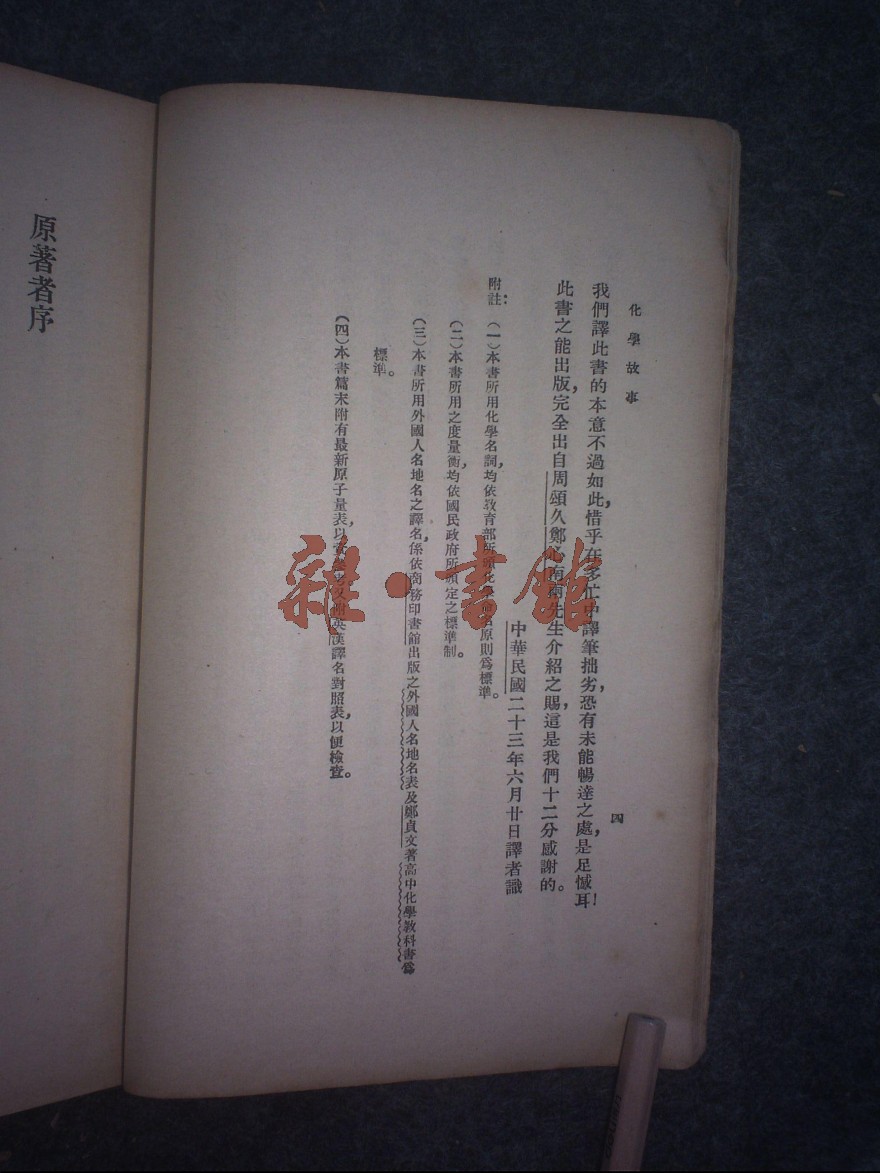 化學故事
四
我們譯此書的本意不過如此,惜乎在多忙中譯筆拙劣,恐有未能暢達之處,是足憾耳!
此書之能出版,完全出自周頌久鄭心南兩先生介紹之賜,這是我們十二分感謝的。
中華民國二十三年六月廿日譯者識
附註:(一)本書所用化學名詞,均依敎育部所頒化學命名原則爲標準。
(二)本書所用之度量衡,均依國民政府所頒定之標準制。
(三)本書所用外國人名地名之譯名,係依商務印書館出版之外國人名地名表及鄭貞文著高中化學敎科書爲
標準。
(四)本書篇末附有最新原子量表,以又附英漢譯名對照表,以便檢查。
原著者序
雜·書館